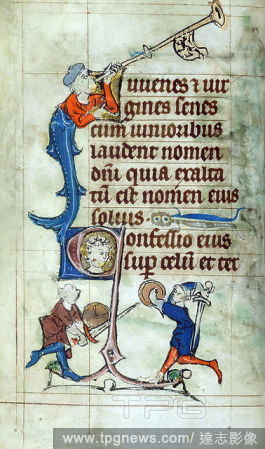 Iuvenes ⁊ uir
gines senes
cum iunioribus
laudent nomen
dñi quia exalta
tũ est nomen eius
solius
Confessio eius
sup celũ et ter
TPG
www.tpgnews.com/ 達志影像